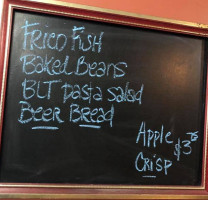 Frico Fish
Baked Beans
BLT pasta salad
Beer Bread
Apple $3.75
Crisp